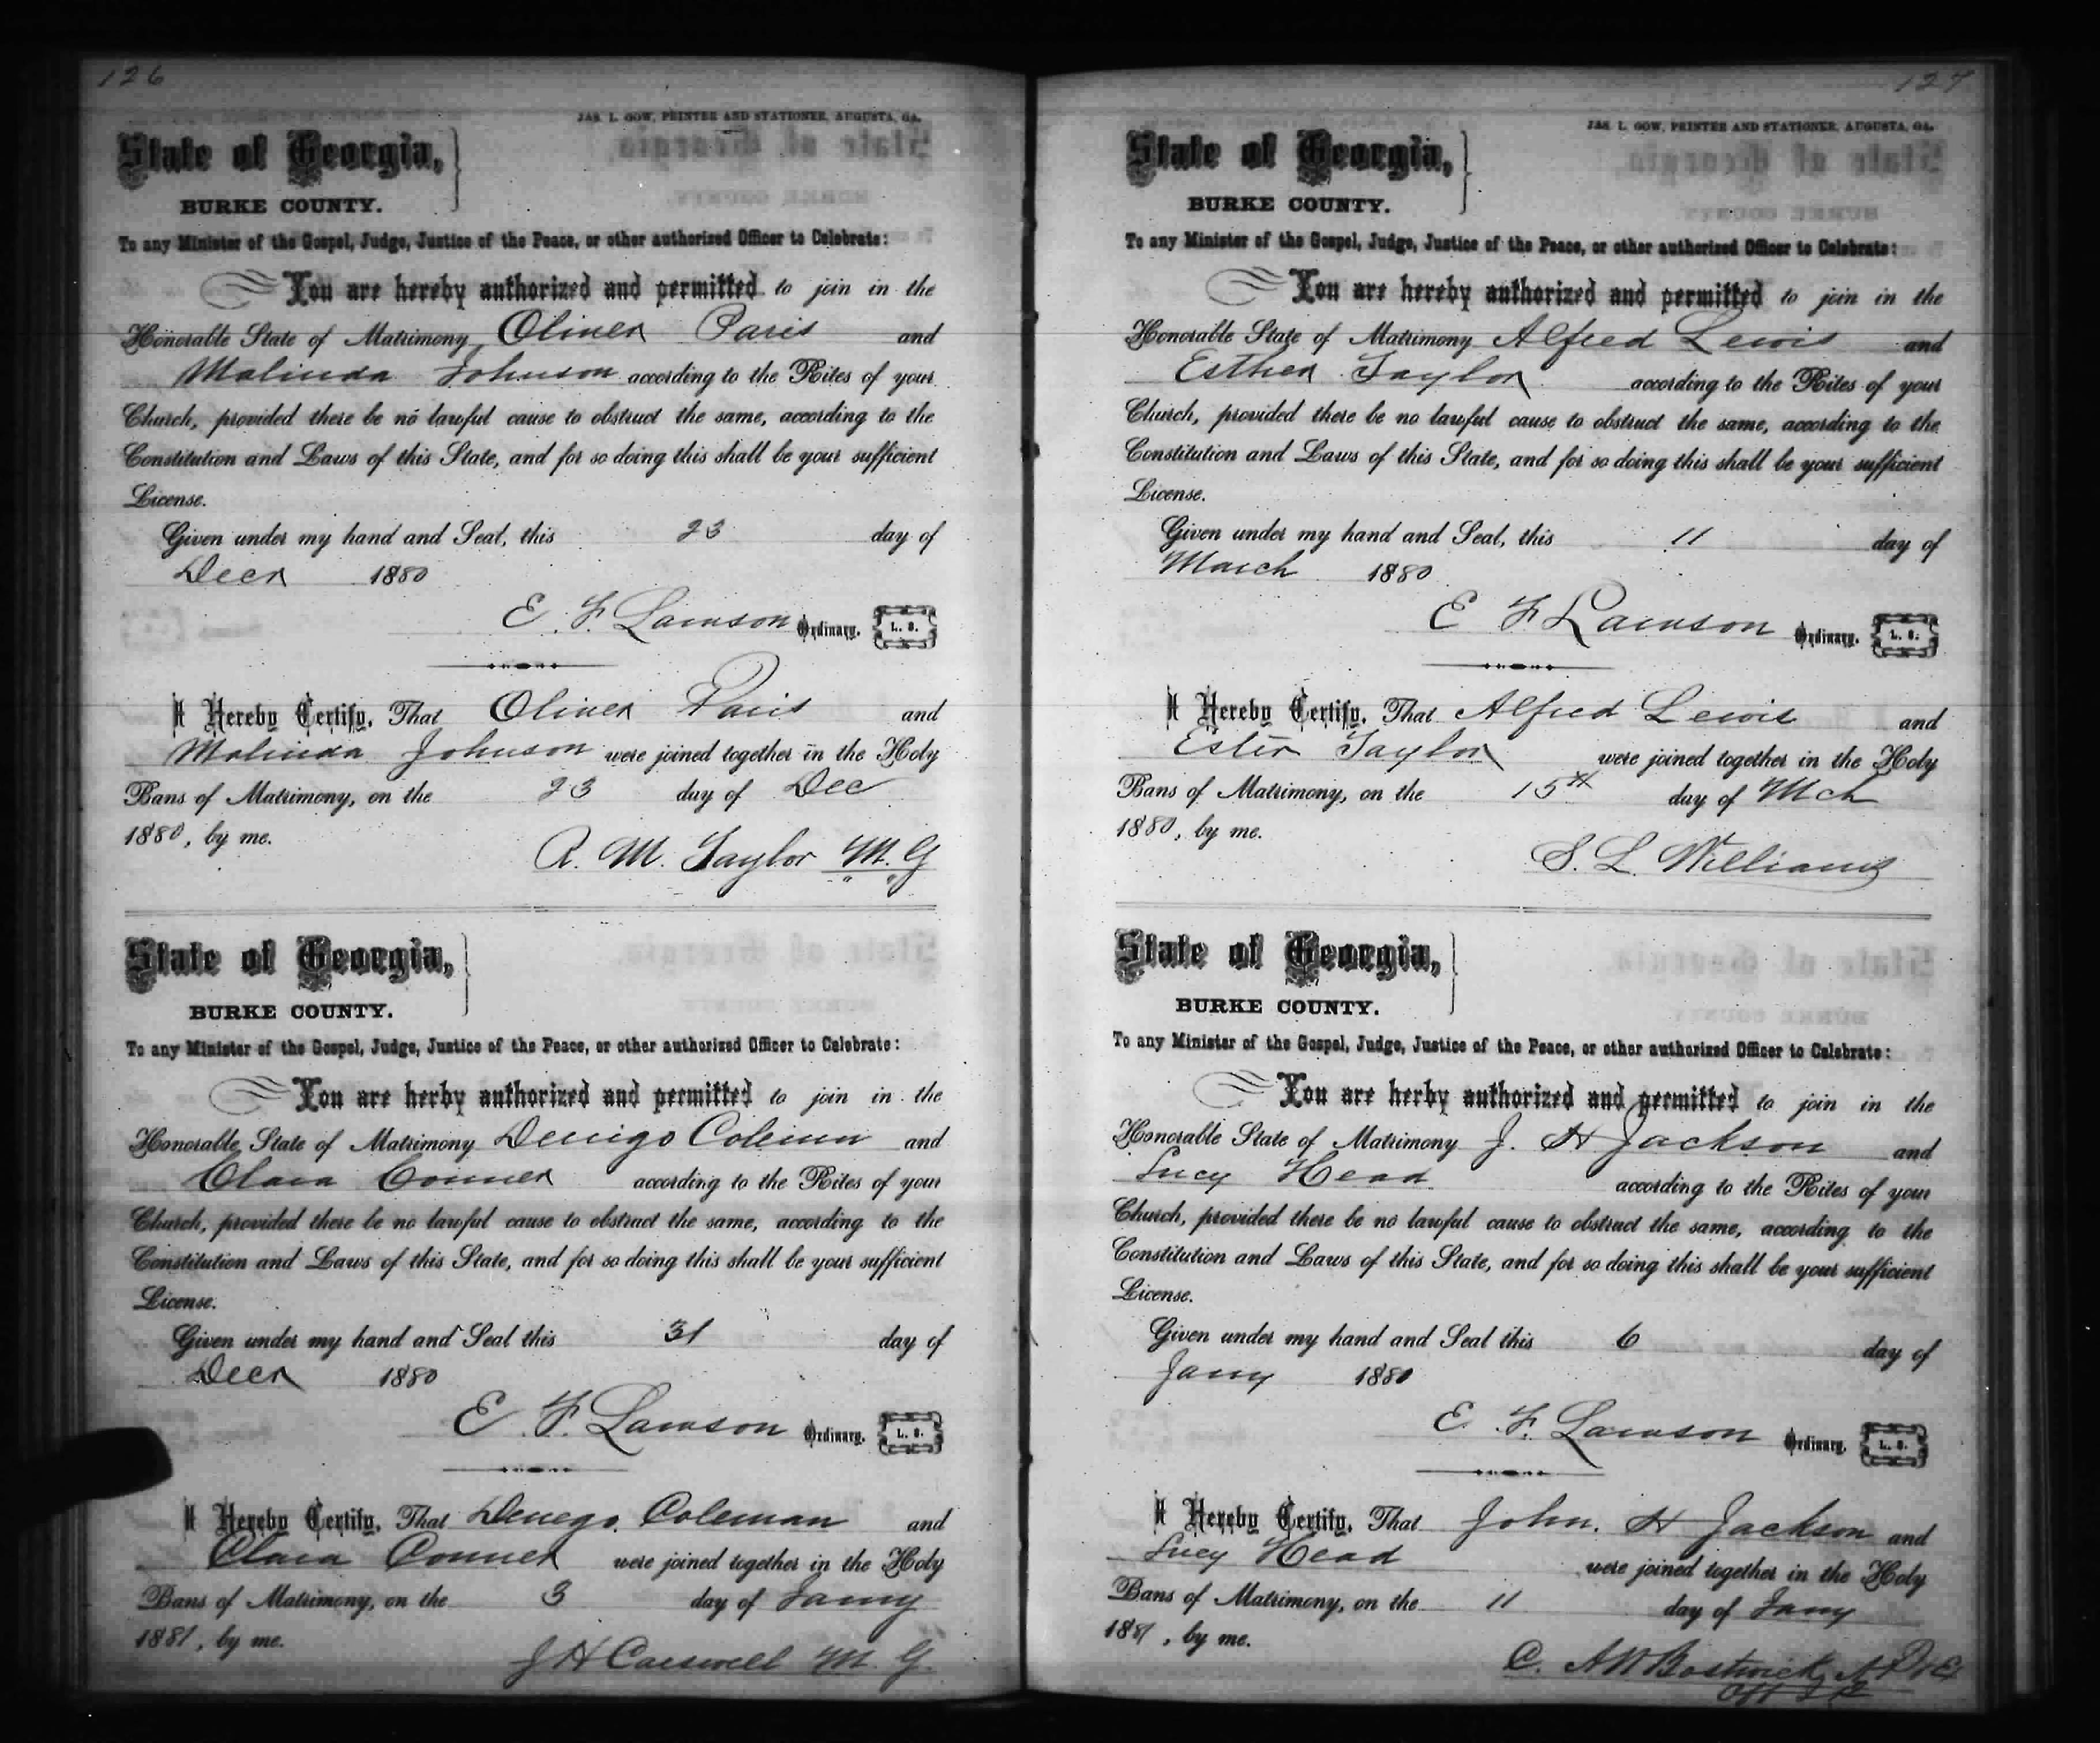 126
JAS. L. GOW, PRINTER AND STATIONER, AUGUSTA, GA.
State of Georgia,
BURKE COUNTY.
To any Minister of the Gospel, Judge, Justice of the Peace, or other authorized Officer to Celebrate:
You are hereby authorized and permitted to join in the
Honorable State of Matrimony Oliver Paris and
Malinda Johnson according to the Rites of your
Church, provided there be no lawful cause to obstruct the same, according to the
Constitution and Laws of this State, and for so doing this shall be your sufficient
License.
Given under my hand and Seal, this 23 day of
Decr 1880
E. F. Lawson Ordinary. L. S.
I Hereby Certify, That Oliver Paris and
Malinda Johnson were joined together in the Holy
Bans of Matrimony, on the 23 day of Dec
1880, by me.
R. M. Taylor M. G
State of Georgia,
BURKE COUNTY.
To any Minister of the Gospel, Judge, Justice of the Peace, or other authorized Officer to Celebrate:
You are herby authorized and permitted to join in the
Honorable State of Matrimony Denigo Coleman and
Clara Conner according to the Rites of your
Church, provided there be no lawful cause to obstruct the same, according to the
Constitution and Laws of this State, and for so doing this shall be your sufficient
License.
Given under my hand and Seal this 31 day of
Decr 1880
E. F. Lawson Ordinary. L. S.
I Hereby Certify, That Denego Coleman and
Clara Conner were joined together in the Holy
Bans of Matrimony, on the 3 day of Jany
1881, by me.
J H Carswell M. G.
127
JAS. L. GOW, PRINTER AND STATIONER, AUGUSTA, GA.
State of Georgia,
BURKE COUNTY.
To any Minister of the Gospel, Judge, Justice of the Peace, or other authorized Officer to Celebrate:
You are hereby authorized and permitted to join in the
Honorable State of Matrimony Alfred Lewis and
Esther Taylor according to the Rites of your
Church, provided there be no lawful cause to obstruct the same, according to the
Constitution and Laws of this State, and for so doing this shall be your sufficient
License.
Given under my hand and Seal, this 11 day of
March 1880
E F Lawson Ordinary. L. S.
I Hereby Certify, That Alfred Lewis and
Ester Taylor were joined together in the Holy
Bans of Matrimony, on the 15th day of Mch
1880, by me.
S. L. Williams
State of Georgia,
BURKE COUNTY.
To any Minister of the Gospel, Judge, Justice of the Peace, or other authorized Officer to Celebrate:
You are herby authorized and permitted to join in the
Honorable State of Matrimony J. H Jackson and
Lucy Head according to the Rites of your
Church, provided there be no lawful cause to obstruct the same, according to the
Constitution and Laws of this State, and for so doing this shall be your sufficient
License.
Given under my hand and Seal this 6 day of
Jany 1880
E. F. Lawson Ordinary. L. S.
I Hereby Certify, That John. H Jackson and
Lucy Head were joined together in the Holy
Bans of Matrimony, on the 11 day of Jany
1881, by me.
C. A W Bostwick